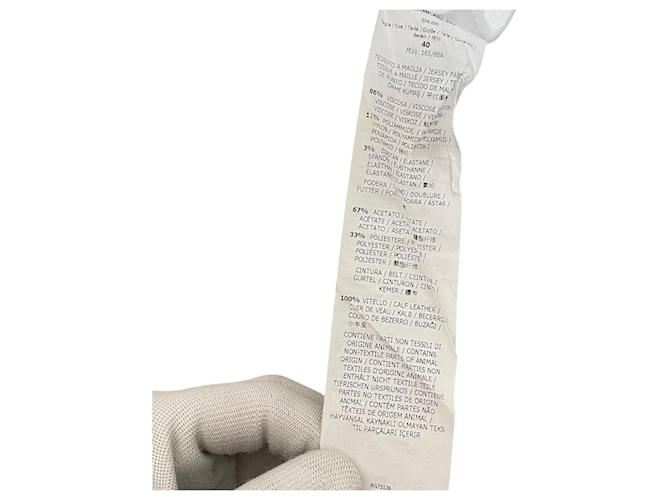 Taglia / Size / Taille / Größe / Talla /
Beden /
40
尺码: 165/88A
TESSUTO A MAGLIA / JERSEY FABRIC
TISSU A MAILLE / JERSEY /
DE PUNTO / TECIDO DE MALHA
ÖRME KUMAŞ /
86% VISCOSA / VISCOSE
VISCOSE / VISKOSE /
VISCOSE / VISKOZ /
11% POLIAMMIDE /
NYLON / POLYAMID
POLIAMIDA / POLIAMIDA /
POLYAMID /
3% ELASTAN / ELASTANE /
SPANDEX / ELASTHANNE /
ELASTHAN / ELASTANO /
ELASTANO / ELASTAN /
FODERA / LINING / DOUBLURE /
FUTTER / FORRO / FORRA / ASTAR /
67% ACETATO / ACETATE /
ACÉTATE / ACETAT / ACETATO /
ACETATO / ASETAT
33% POLIESTERE / POLYESTER /
POLYESTER / POLYESTER /
POLIÉSTER / POLIÉSTER /
POLIESTER /
CINTURA / BELT / CEINTURE /
GÜRTEL / CINTURON / CINTO /
KEMER / 腰带
100% VITELLO / CALF LEATHER /
CUIR DE VEAU / KALB / BECERRO /
COURO DE BEZERRO / BUZAĞI /
小牛皮
CONTIENE PARTI NON TESSILI DI
ORIGINE ANIMALE / CONTAINS
NON-TEXTILE PARTS OF ANIMAL
ORIGIN / CONTIENT PARTIES NON
TEXTILES D'ORIGINE ANIMALE /
ENTHÄLT NICHT TEXTILE TEILE
TIERISCHEN URSPRUNGS / CONTIENE
PARTES NO TEXTILES DE ORIGEN
ANIMAL / CONTÉM PARTES NÃO
TÊXTEIS DE ORIGEM ANIMAL /
HAYVANSAL KAYNAKLI OLMAYAN TEKS
TİL PARÇALARI İÇERİR
RN73136